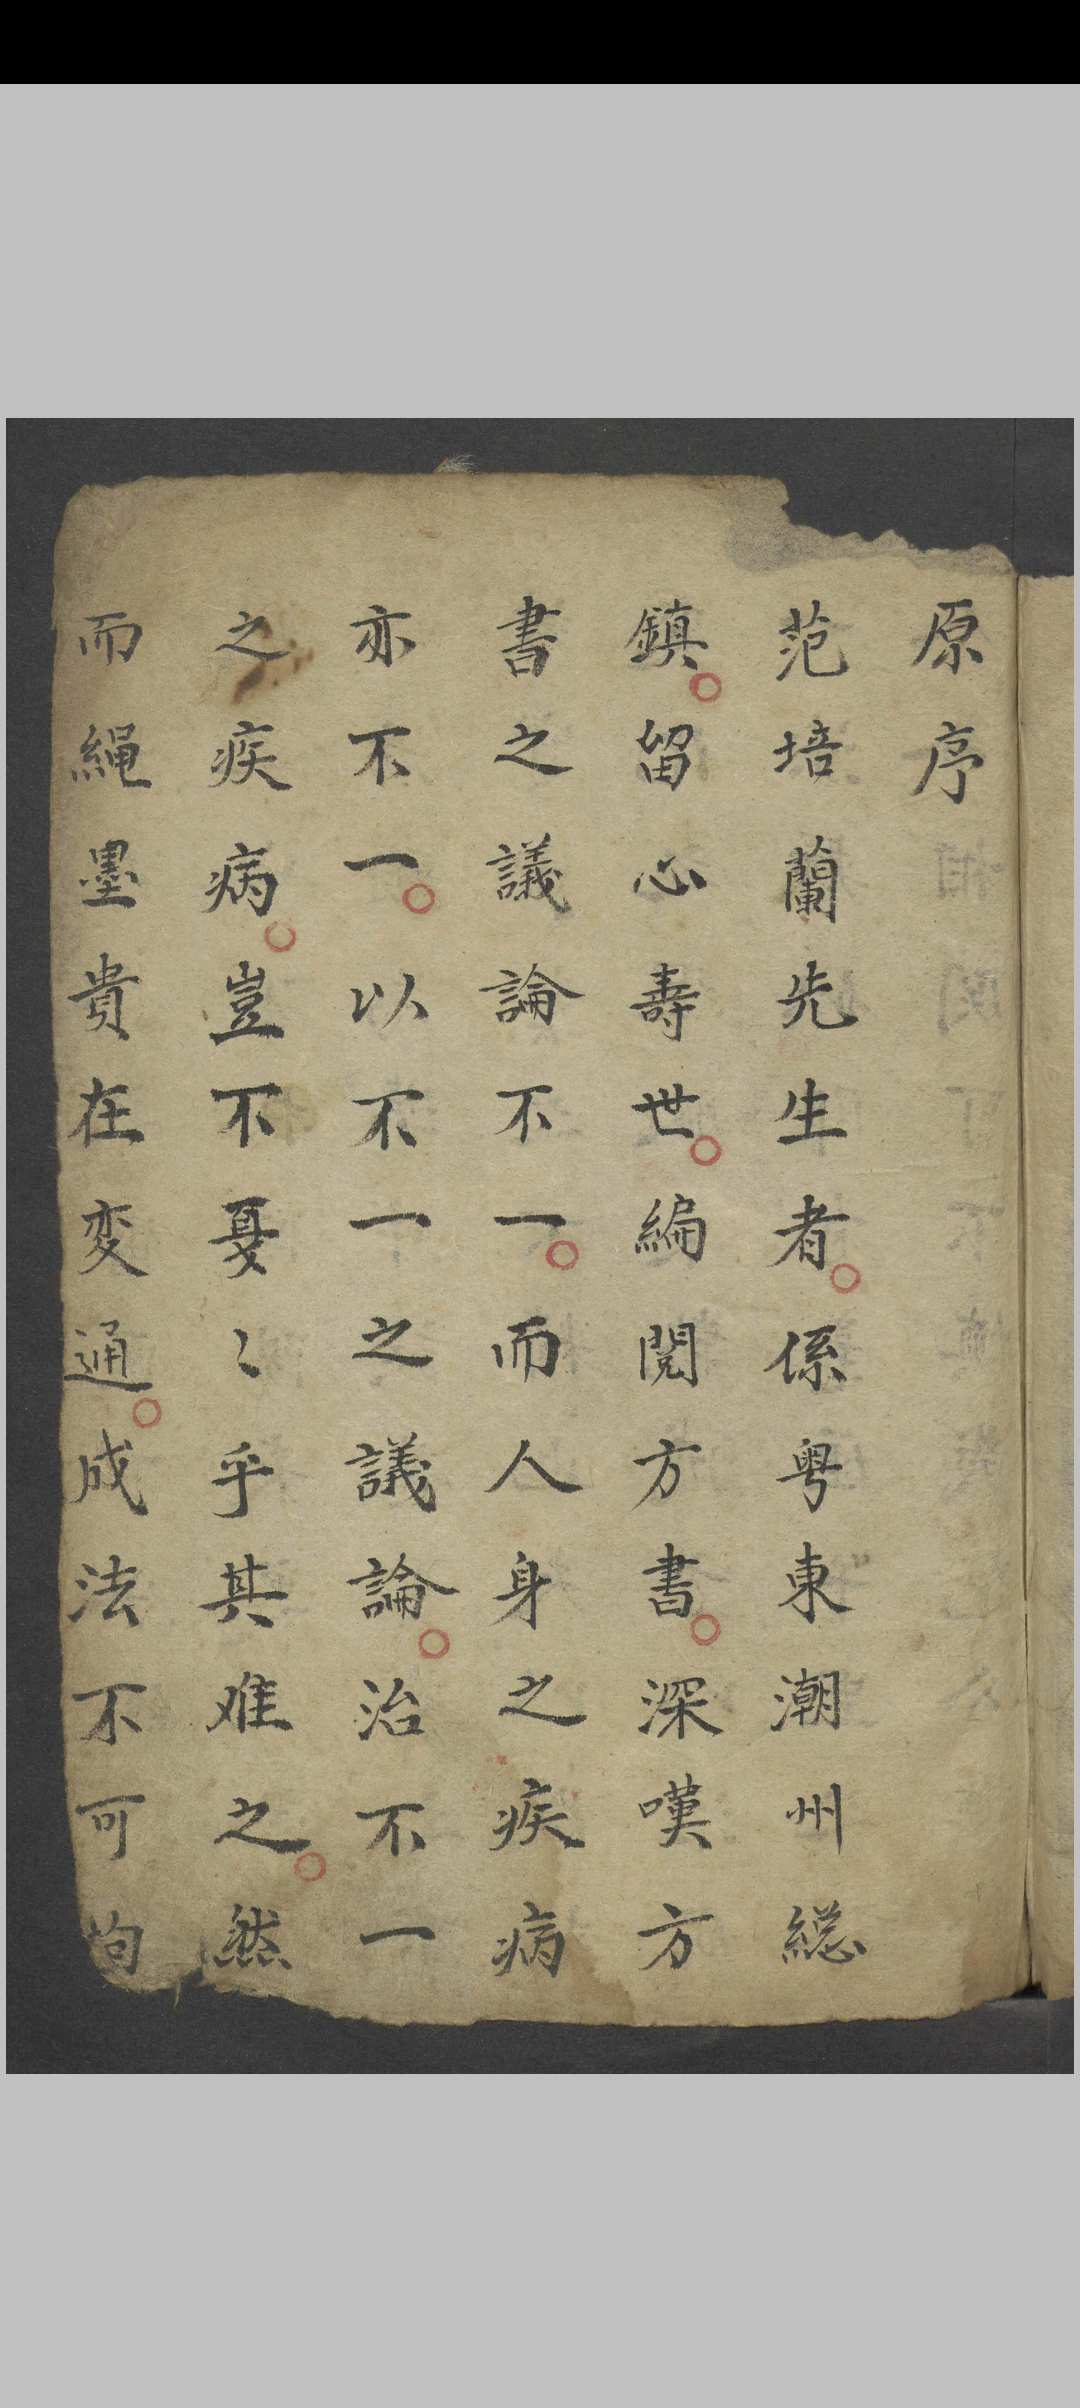 原序
范培蘭先生者。係粤東潮州総
鎮。留心壽世。編閱方書。深嘆方
書之議論不一。而人身之疾病
亦不一。以不一之議論。治不一
之疾病。豈不戞〻乎其难之。然
而繩墨貴在变通。成法不可拘